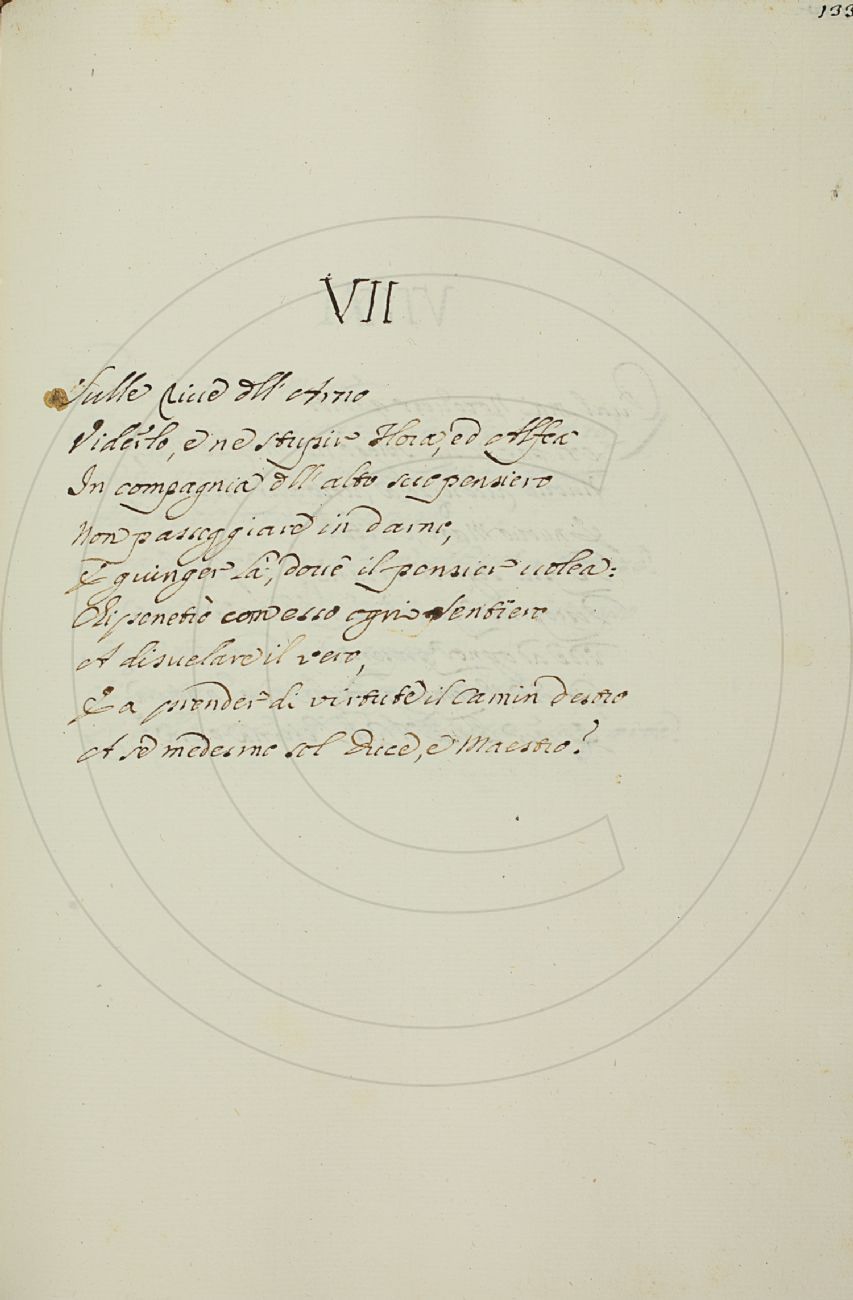 133
VII
Sulle Rive dell' Arno
Viderlo, e ne stupir Flora, ed Alfea
In compagnia dell' alto suo pensiero
Non passeggiare in darno,
E giunger là, dove il pensier volea:
Ripenetrò con esso ogni sentiero
A disvelare il vero,
E a prender di virtute il camin destro
A se medesmo sol Duce, e Maestro?